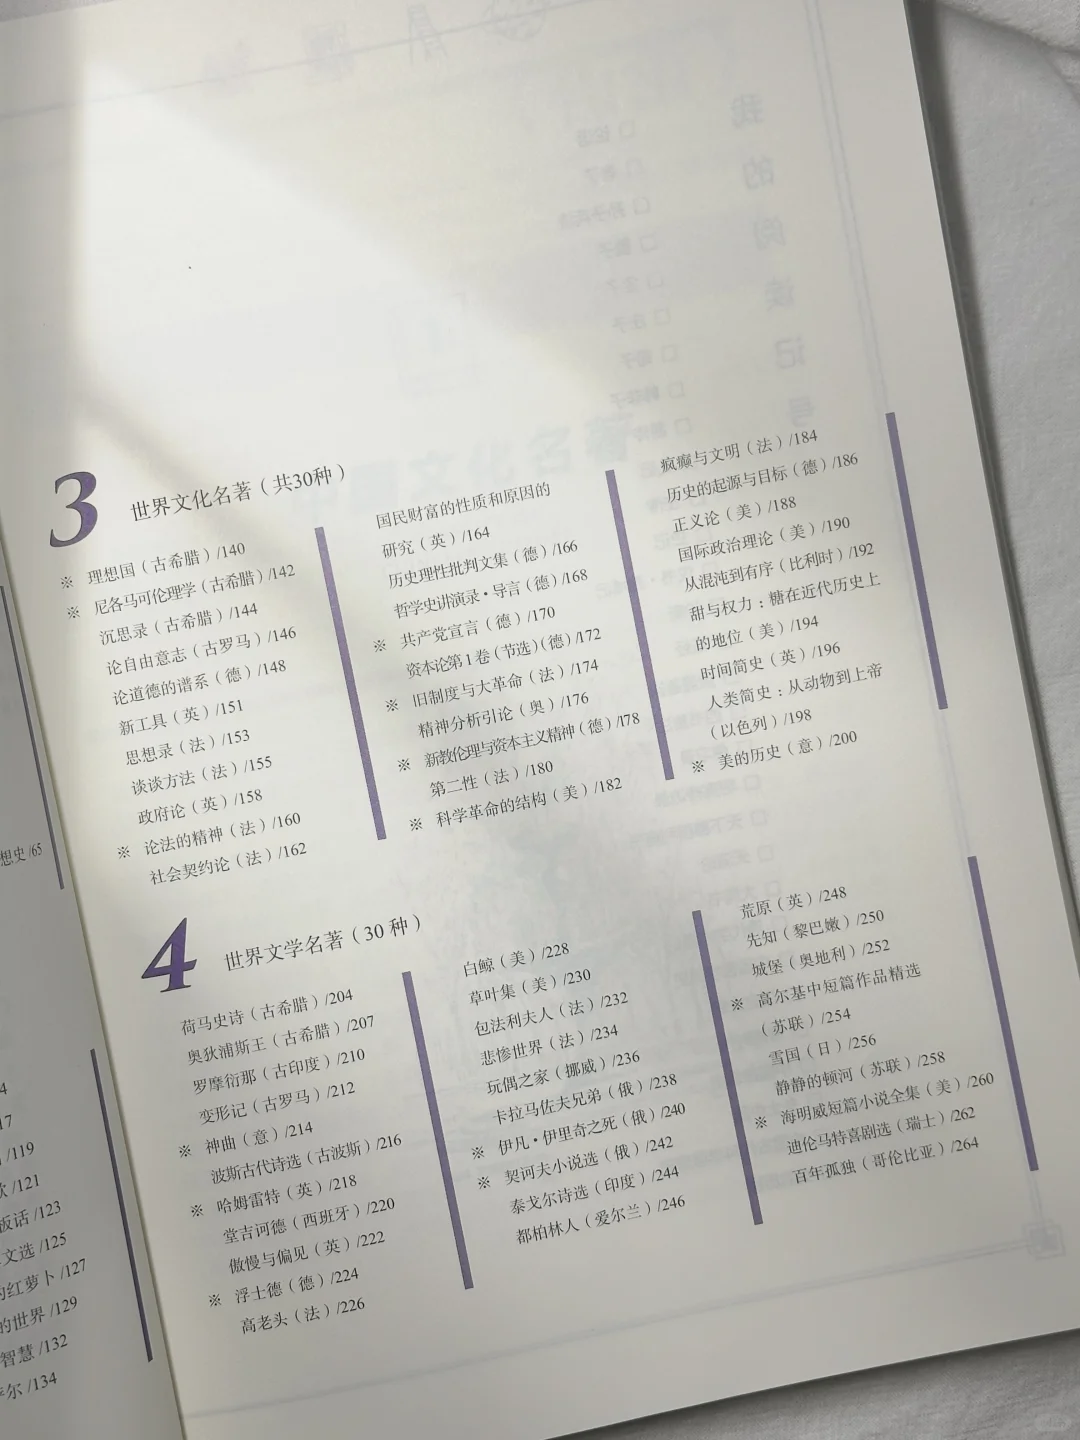 想史/65
4
17
/119
欠/121
饭话/123
文选/125
的红萝卜/127
的世界/129
智慧/132
尔/134
3
世界文化名著(共30种)
※ 理想国(古希腊)/140
※ 尼各马可伦理学(古希腊)/142
沉思录(古希腊)/144
论自由意志(古罗马)/146
论道德的谱系(德)/148
新工具(英)/151
思想录(法)/153
谈谈方法(法)/155
政府论(英)/158
※ 论法的精神(法)/160
社会契约论(法)/162
国民财富的性质和原因的
研究(英)/164
历史理性批判文集(德)/166
哲学史讲演录·导言(德)/168
※ 共产党宣言(德)/170
资本论第1卷(节选)(德)/172
※ 旧制度与大革命(法)/174
精神分析引论(奥)/176
※ 新教伦理与资本主义精神(德)/178
第二性(法)/180
※ 科学革命的结构(美)/182
疯癫与文明(法)/184
历史的起源与目标(德)/186
正义论(美)/188
国际政治理论(美)/190
从混沌到有序(比利时)/192
甜与权力:糖在近代历史上
的地位(美)/194
时间简史(英)/196
人类简史:从动物到上帝
(以色列)/198
※ 美的历史(意)/200
4
世界文学名著(30种)
荷马史诗(古希腊)/204
奥狄浦斯王(古希腊)/207
罗摩衍那(古印度)/210
变形记(古罗马)/212
※ 神曲(意)/214
波斯古代诗选(古波斯)/216
※ 哈姆雷特(英)/218
堂吉诃德(西班牙)/220
傲慢与偏见(英)/222
※ 浮士德(德)/224
高老头(法)/226
白鲸(美)/228
草叶集(美)/230
包法利夫人(法)/232
悲惨世界(法)/234
玩偶之家(挪威)/236
卡拉马佐夫兄弟(俄)/238
※ 伊凡·伊里奇之死(俄)/240
※ 契诃夫小说选(俄)/242
泰戈尔诗选(印度)/244
都柏林人(爱尔兰)/246
荒原(英)/248
先知(黎巴嫩)/250
城堡(奥地利)/252
※ 高尔基中短篇作品精选
(苏联)/254
雪国(日)/256
静静的顿河(苏联)/258
※ 海明威短篇小说全集(美)/260
迪伦马特喜剧选(瑞士)/262
百年孤独(哥伦比亚)/264